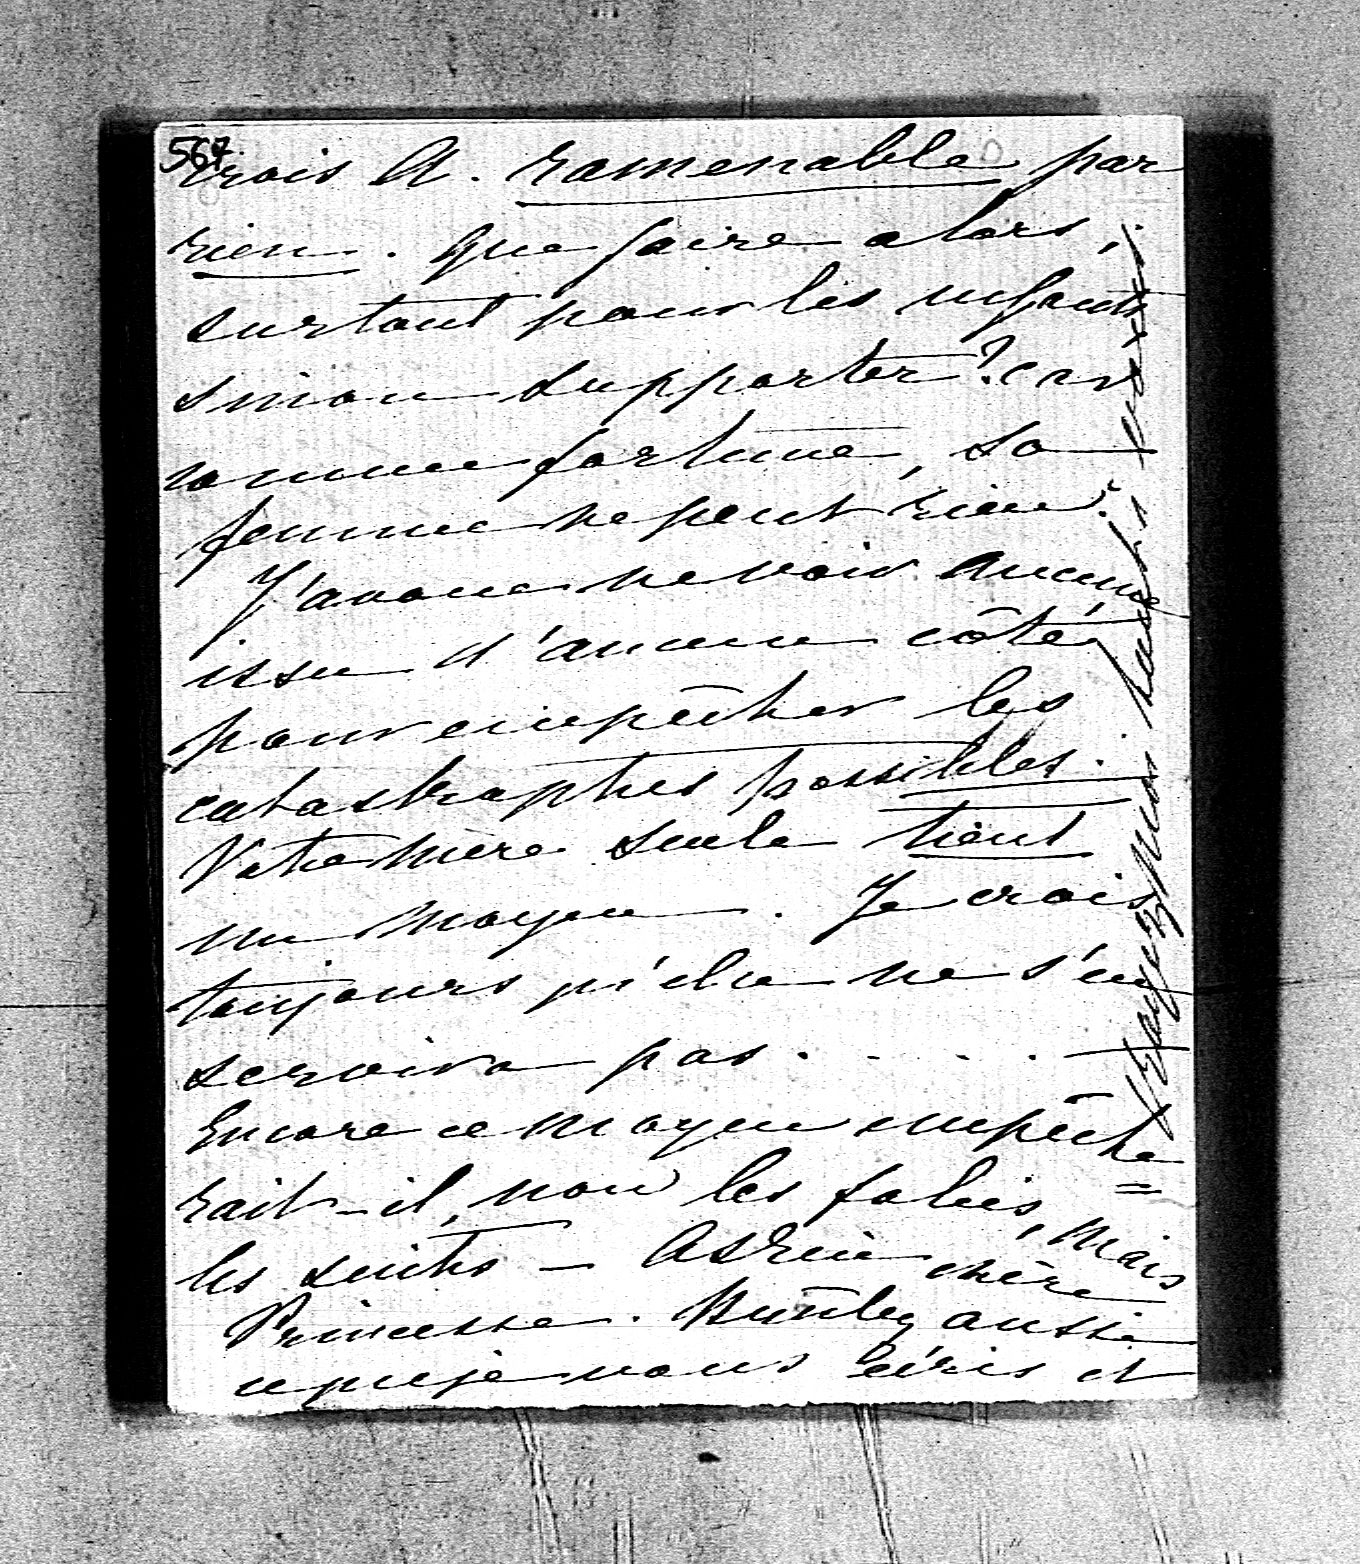 567
crois A. ramenable par
rien. Que faire alors,
surtout pour les enfants
sinon supporter? car
comme fortune, sa
femme ne peut rien.
J'avoue ne voir aucune
issue d'aucun côté
pour empêcher les
catastrophes possibles.
Votre mère seule tient
un moyen. Je crois
toujours qu'elle ne s'en
servira pas. . . . .
Encore ce moyen empêche=
rait-il, non les folies, mais
les suites — chère
Princesse. Brûlez aussi
ce que je vous écris et